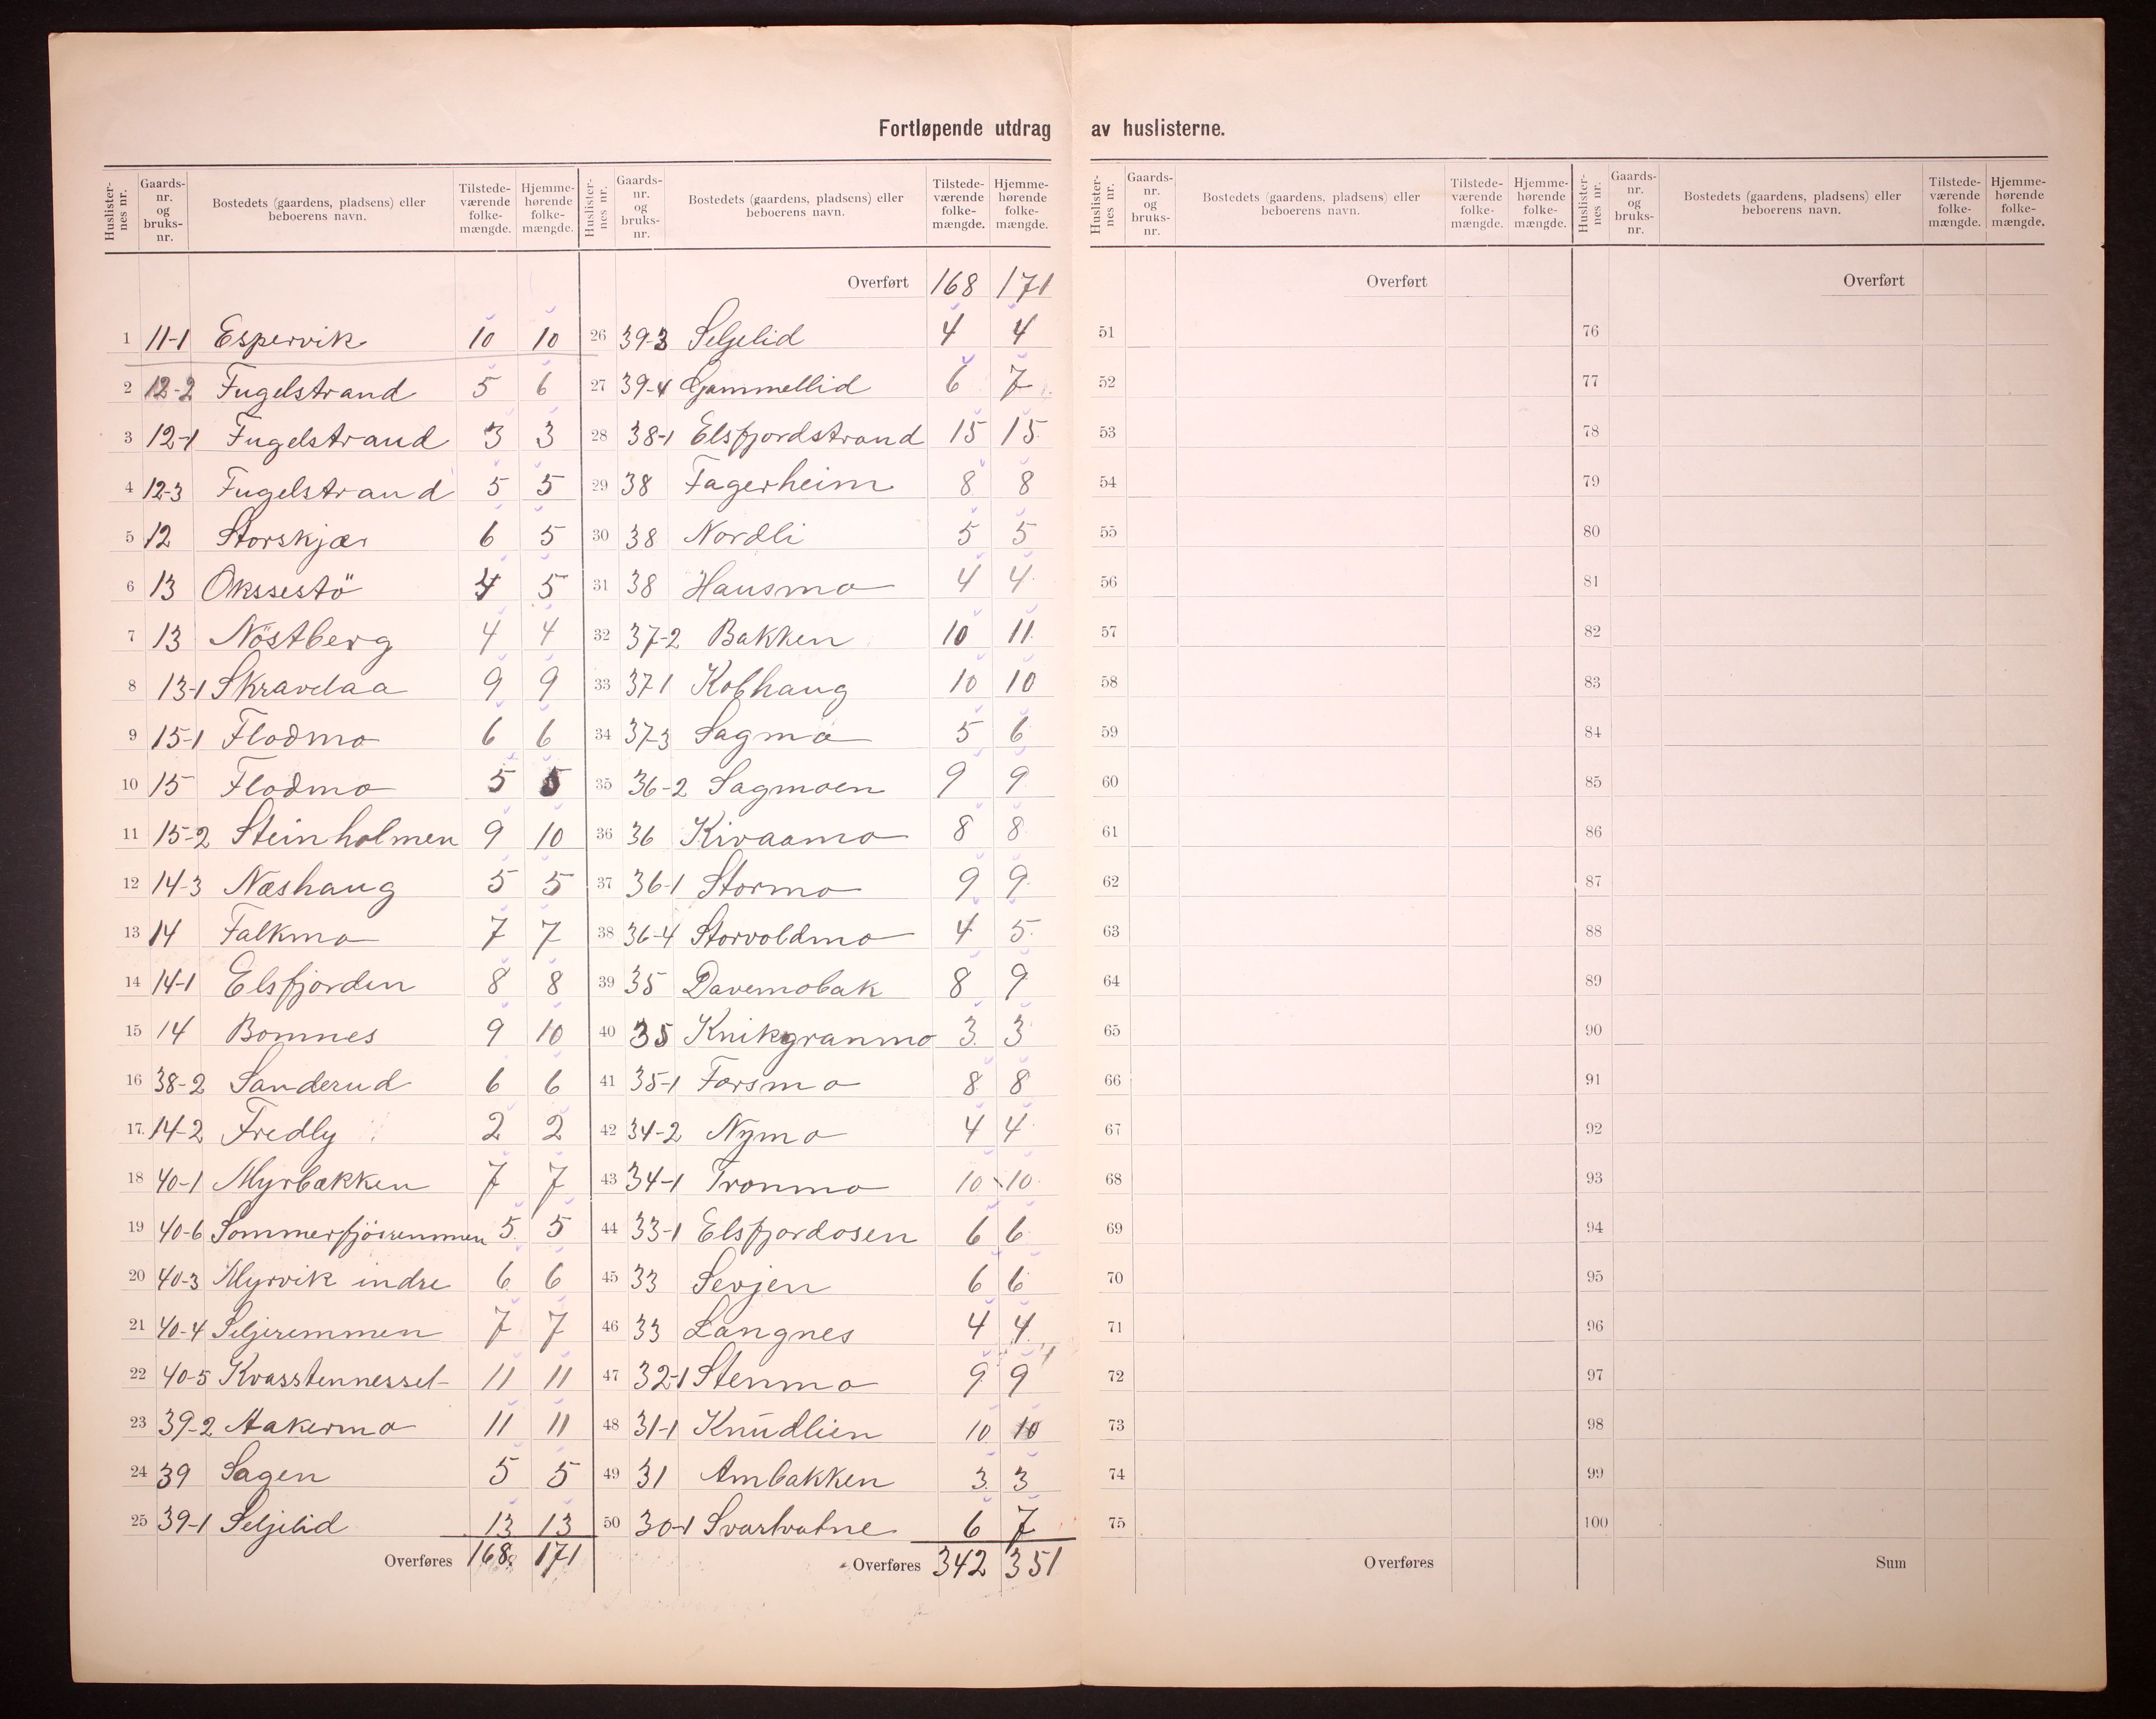 Fortløpende utdrag av huslisterne.
Huslister-nes nr. Gaards-nr. og bruks-nr. Bostedets (gaardens, pladsens) eller beboerens navn. Tilstede-værende folke-mængde. Hjemme-hørende folke-mængde.
1 11-1 Espervik 10 10
2 12-2 Fugelstrand 5 6
3 12-1 Fugelstrand 3 3
4 12-3 Fugelstrand 5 5
5 12 Storskjær 6 5
6 13 Okssestö 4 5
7 13 Nöstberg 4 4
8 13-1 Skravlaa 9 9
9 15-1 Flodmo 6 6
10 15 Flodmo 5 5
11 15-2 Steinholmen 9 10
12 14-3 Næshaug 5 5
13 14 Falkmo 7 7
14 14-1 Elsfjorden 8 8
15 14 Bomnes 9 10
16 38-2 Sanderud 6 6
17. 14-2 Fredly 2 2
18 40-1 Myrbakken 7 7
19 40-6 Sommerfjöiremmen 5 5
20 40-3 Myrvik indre 6 6
21 40-4 Seljeremmen 7 7
22 40-5 Kvasstennessel 11 11
23 39-2 Aakermo 11 11
24 39 Sagen 5 5
25 39-1 Seljelid 13 13
Overføres 168 171
Huslister-nes nr. Gaards-nr. og bruks-nr. Bostedets (gaardens, pladsens) eller beboerens navn. Tilstede-værende folke-mængde. Hjemme-hørende folke-mængde.
Overført 168 171
26 39-3 Seljelid 4 4
27 39-4 Gammellid 6 7
28 38-1 Elsfjordstrand 15 15
29 38 Fagerheim 8 8
30 38 Nordli 5 5
31 38 Hausmo 4 4
32 37-2 Bakken 10 11
33 37 1 Kobhaug 10 10
34 37-3 Sagmo 5 6
35 36-2 Sagmoen 9 9
36 36 Kivaamo 8 8
37 36-1 Stormo 9 9
38 36-4 Storvoldmo 4 5
39 35 Davemobak 8 9
40 35 Knikgranmo 3 3
41 35-1 Forsmo 8 8
42 34-2 Nymo 4 4
43 34-1 Tronmo 10 10
44 33-1 Elsfjordosen 6 6
45 33 Sevjen 6 6
46 33 Langnes 4 4
47 32-1 Stenmo 9 9
48 31-1 Knudlien 10 10
49 31 Ambakken 3 3
50 30-1 Svartvatne 6 7
Overføres 342 351
Huslister-nes nr. Gaards-nr. og bruks-nr. Bostedets (gaardens, pladsens) eller beboerens navn. Tilstede-værende folke-mængde. Hjemme-hørende folke-mængde.
Overført
51
52
53
54
55
56
57
58
59
60
61
62
63
64
65
66
67
68
69
70
71
72
73
74
75
Overføres
Huslister-nes nr. Gaards-nr. og bruks-nr. Bostedets (gaardens, pladsens) eller beboerens navn. Tilstede-værende folke-mængde. Hjemme-hørende folke-mængde.
Overført
76
77
78
79
80
81
82
83
84
85
86
87
88
89
90
91
92
93
94
95
96
97
98
99
100
Sum